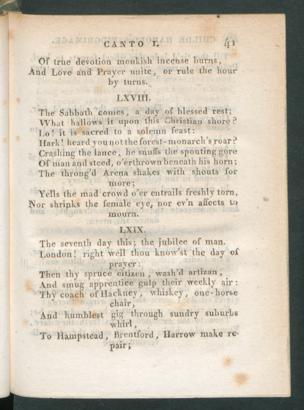 CANTO I. 41
Of true devotion monkish incense burns,
And Love and Prayer unite, or rule the hour
by turns.
LXVIII.
The Sabbath comes, a day of blessed rest;
What hallows it upon this Christian shore?
Lo! it is sacred to a solemn feast:
Hark! heard you not the forest-monarch's roar?
Crashing the lance, he snuffs the spouting gore
Of man and steed, o'erthrown beneath his horn;
The throng'd Arena shakes with shouts for
more;
Yells the mad crowd o'er entrails freshly torn,
Nor shrinks the female eye, nor ev'n affects to
mourn.
LXIX.
The seventh day this; the jubilee of man.
London! right well thou know'st the day of
prayer:
Then thy spruce citizen, wash'd artizan,
And smug apprentice gulp their weekly air:
Thy coach of Hackney, whiskey, one-horse
chair,
And humblest gig through sundry suburbs
whirl,
To Hampstead, Brentford, Harrow make re-
pair;